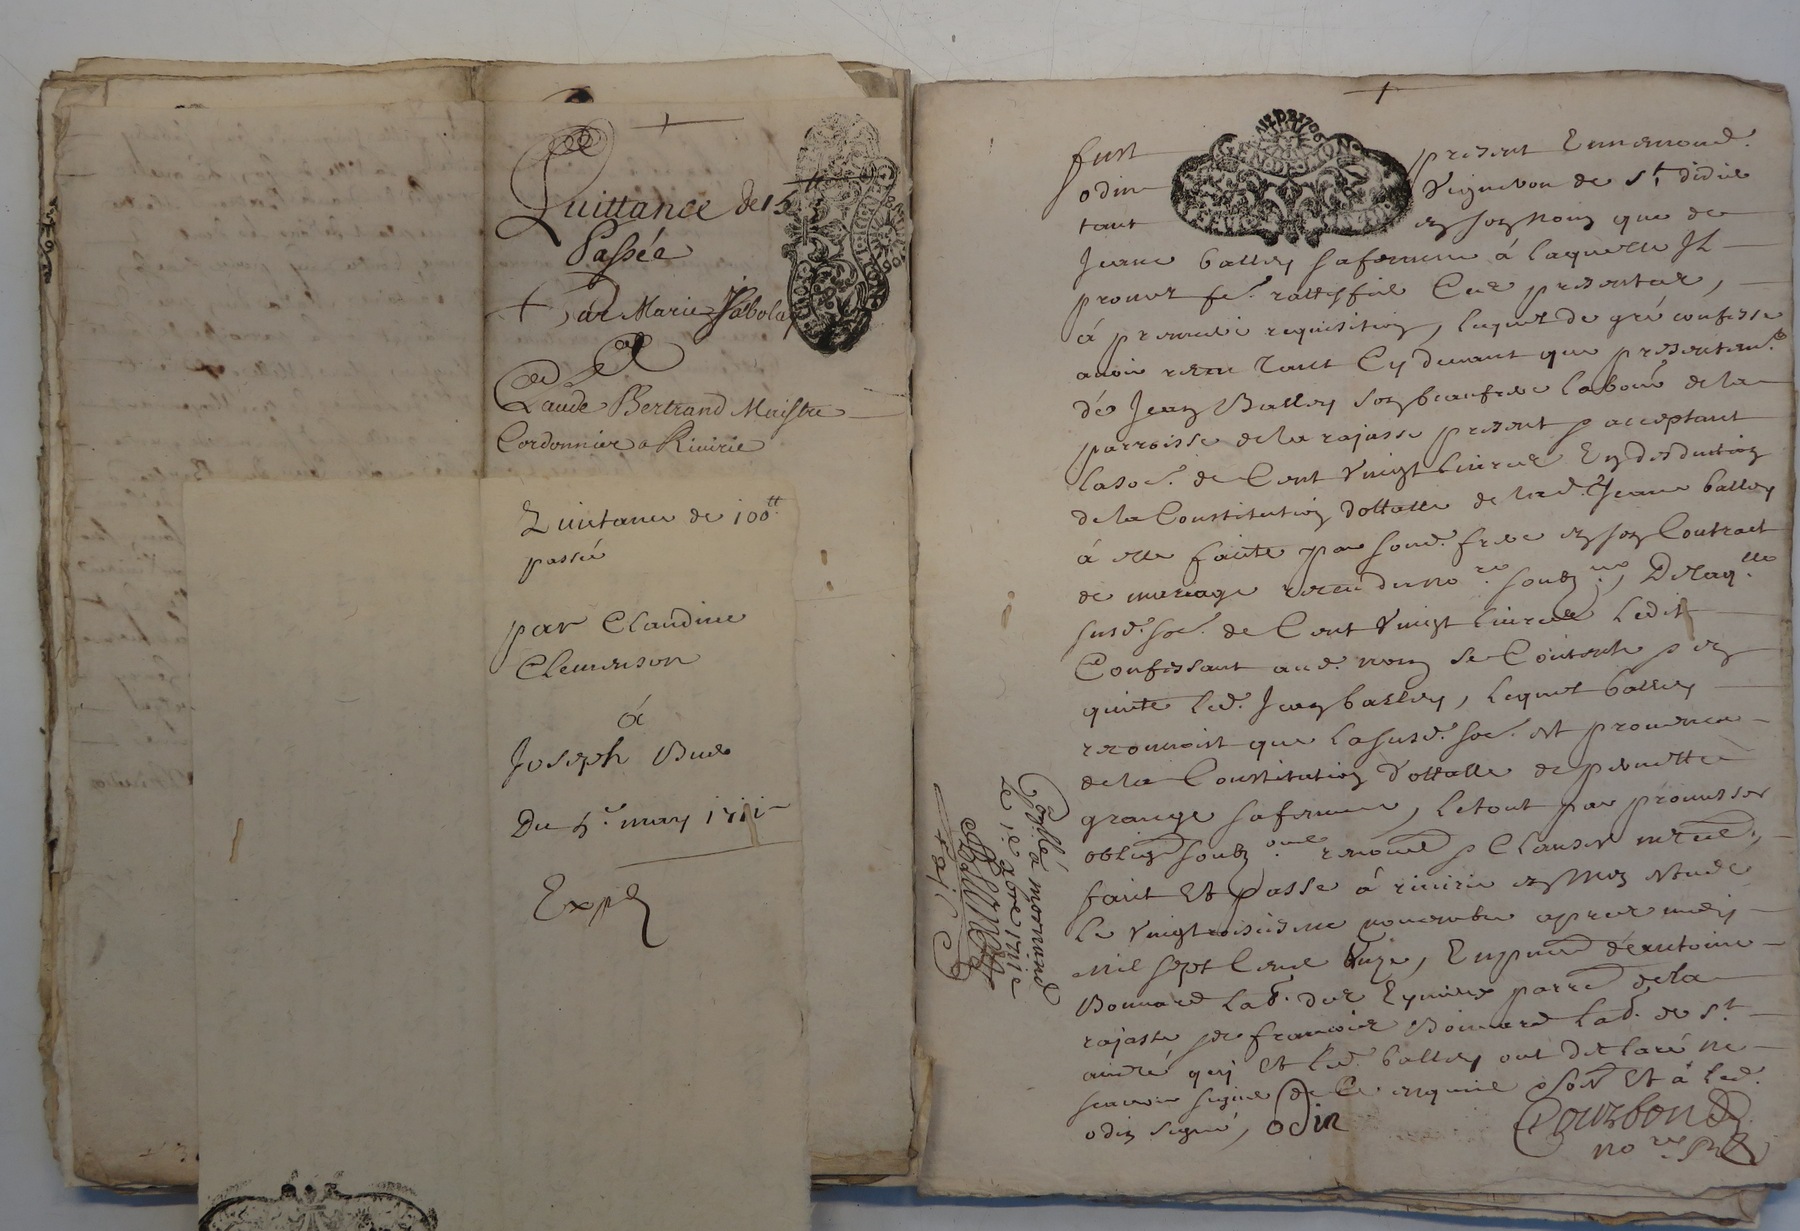 Quittance de 15ᵗᵗ
Passée
Par Marie
Claude Bertrand Maistre
Cordonnier a Riuirie
Quictance de 100ᵗᵗ
passée
par Claudine
Clemenson
à
Joseph
Du 5ᵉ may 1711
Expᵉ
GEN DE LION
fust present Ennemond
odin Vigneron de Sᵗ didier
tant en son nom que de
Jeane balley sa femme à laquelle Il
promet fᵉ. rattiffier Ces presentes,
à premiere requisition, lequel de gré confesse
auoir receu tant Cy deuant que presentemᵗ
de Jean Balley son beaufrere labouʳ de la
parroisse de la rajasse present p acceptant
la soᵉ. de Cent Vingt liures En desduction
de la Constitution dottalle de lad. Jeane balley
à elle faite par sond. frere en son Contract
de mariage receu du noʳᵉ soubzⁿᵉ, De laqˡˡᵉ
susd. soᵉ. de Cent Vingt liures ledit
Confessant aud. nom se Contente p en
quitte led. Jean balley, lequel balley
reconnoist que la susd. soᵉ. est prouenue
de la Constitution dottalle de pernette
grange sa femme, le tout par promesses
oblig soubz renoncᵈ p Clauses
fait Et passé à riuirie en mon estude
Le Vingtroisiesme nouembre apres midy
mil sept Cent Unze, En pncᵉ d'antoine
Bonnard labʳ. des parrᵉ de la
rajasse p francois Bonnard labʳ. de Sᵗ
andré quy Et led. balley ont declaré ne
scauoir signer de Ce enquis p soñ Et à led.
odin signé, odin
Courbon
noʳᵉ
Conllé a mornand
le 1.ᵉ xbre 1711